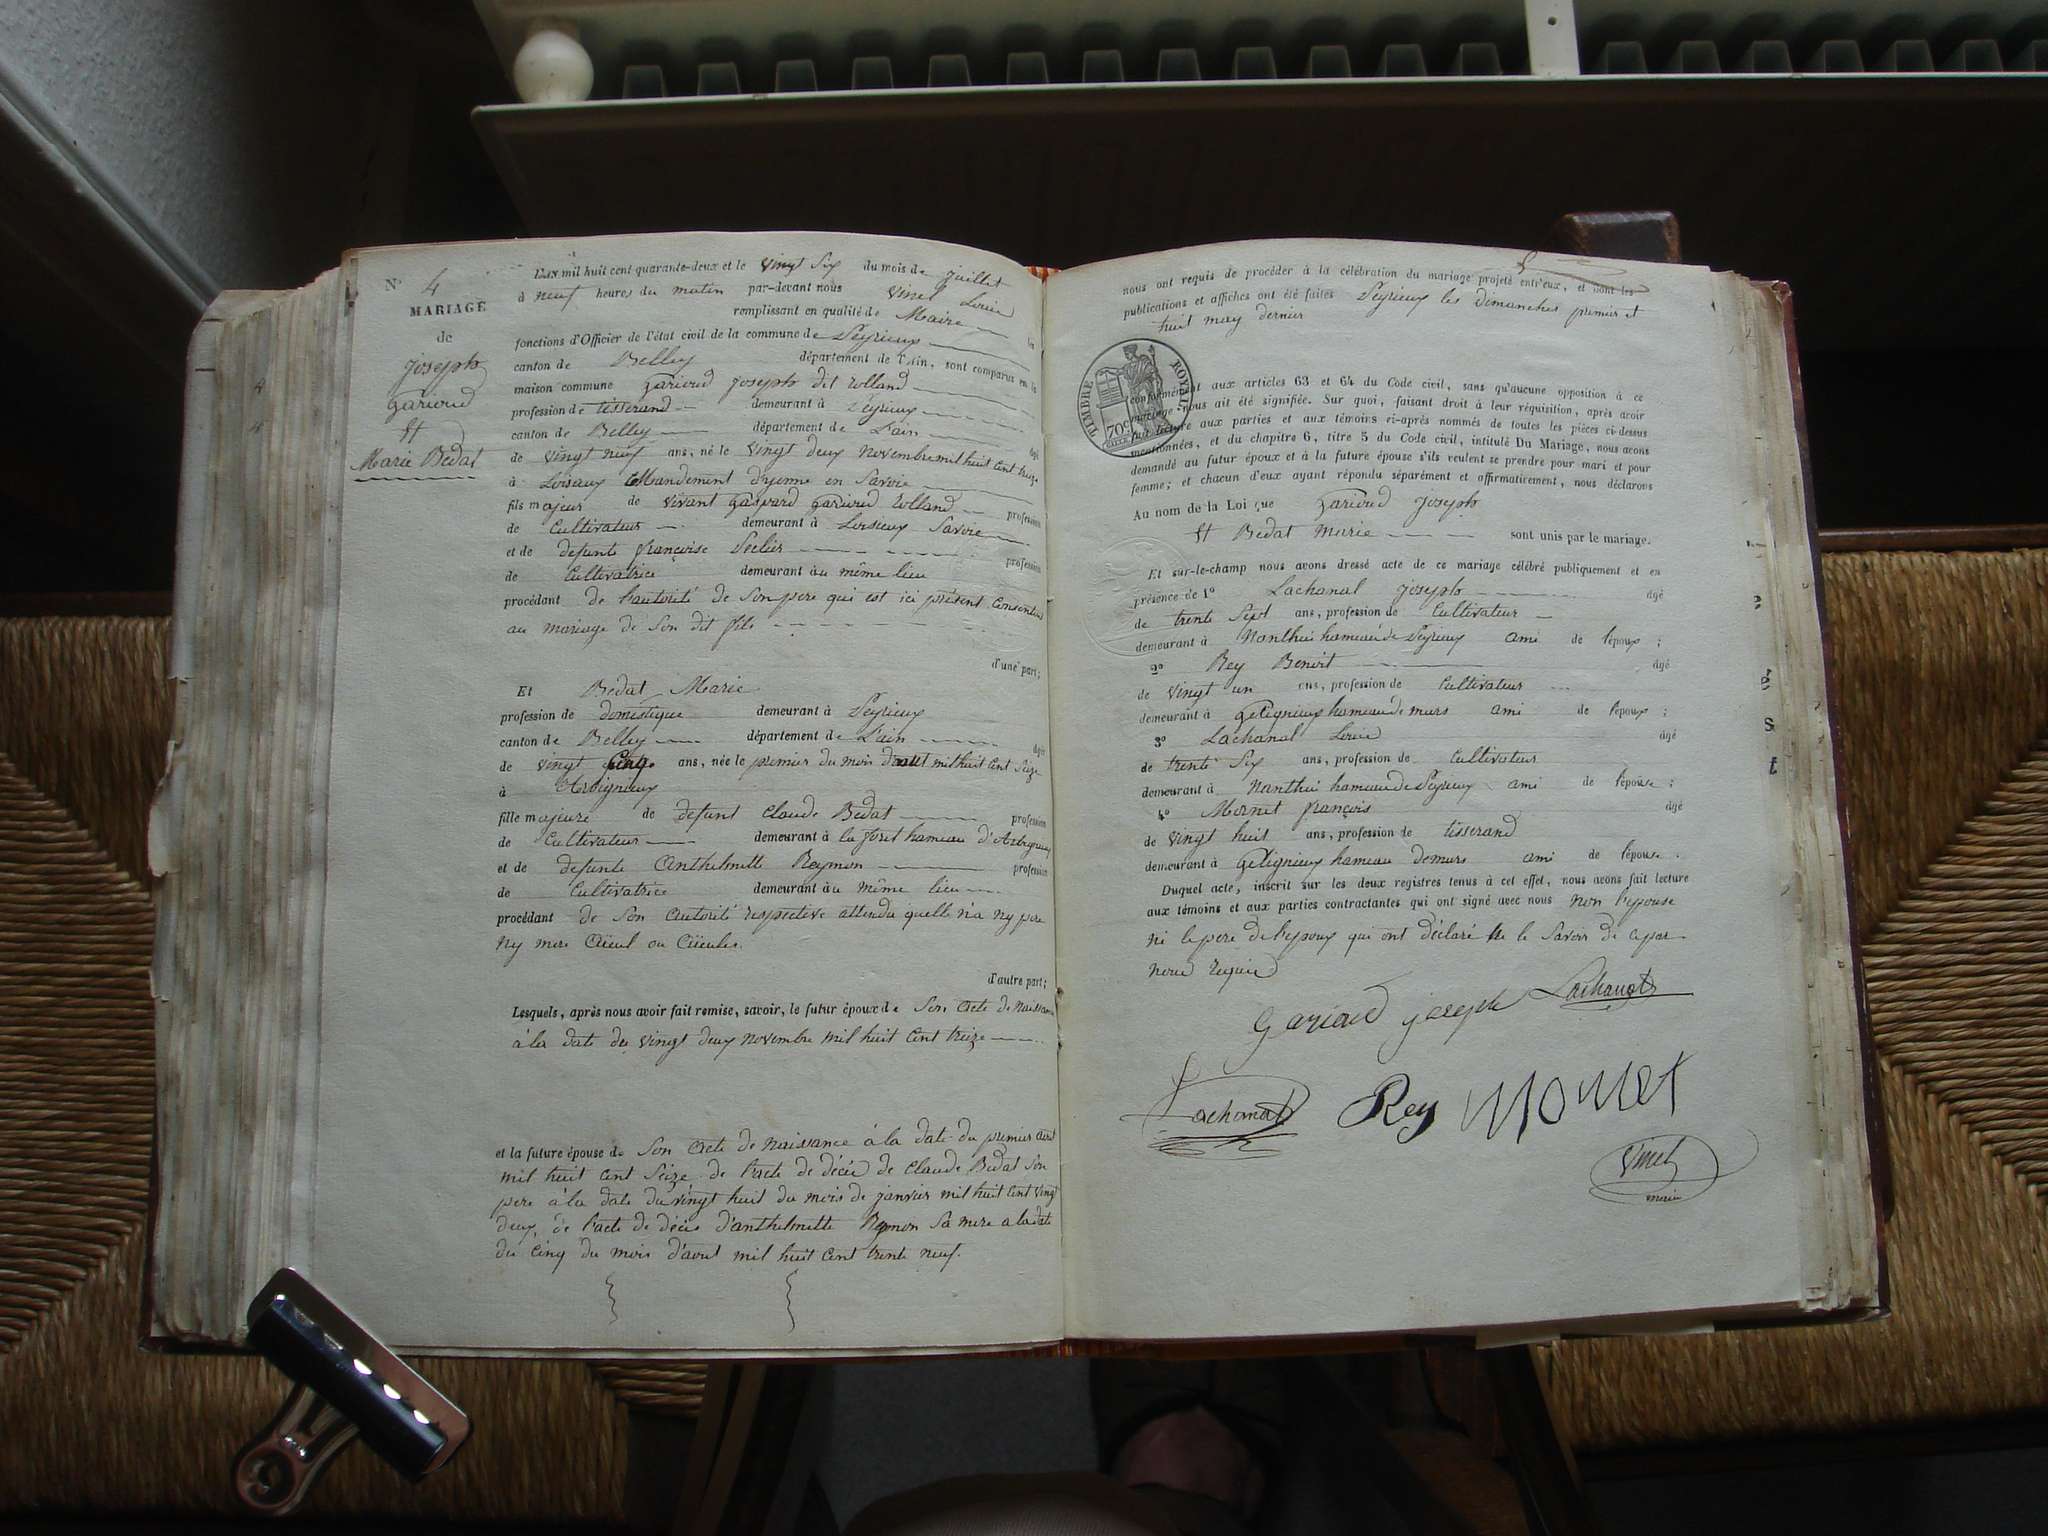 N° 4
MARIAGE
de
joseph
garioud
Et
Marie Bedat
L'AN mil huit cent quarante-deux et le vingt Six du mois de juillet
à neuf heures du matin par-devant nous Vinet Louis
remplissant en qualité de Maire les
fonctions d'Officier de l'état civil de la commune de Peyrieux
canton de Belley département de l'Ain, sont comparus en la
maison commune garioud joseph dit rolland
profession de tisserand demeurant à Peyrieux
canton de Belley département de L'ain âgé
de vingt neuf ans, né le vingt deux novembre mil huit cent treize
à Loisieux Mandement d'yenne en Savoie
fils majeur de vivant gaspard garioud rolland profession
de Cultivateur demeurant à Loisieux Savoie
et de defunte françoise profession
de Cultivatrice demeurant àu même lieu
procédant de l'autorité de Son pere qui est ici présent Consentant
au mariage de Son dit fils
d'une part;
Et Bedat Marie
profession de domestique demeurant à Peyrieux
canton de Belley département de L'ain âgée
de vingt Cinq ans, née le premier du mois d'aout mil huit cent Seize
à Arbignieux
fille majeure de defunt Claude Bedat profession
de Cultivateur demeurant à la foret hameau d'Arbignieux
et de defunte Anthelmette Reymon profession
de Cultivatrice demeurant àu même lieu
procédant de Son autorité respective attendu quelle n'a ny pere
ny mere aïeul ou aïeules
d'autre part;
Lesquels, après nous avoir fait remise, savoir, le futur époux de Son acte de Naissance
à la date du vingt deux novembre mil huit Cent treize
et la future épouse de Son acte de Naissance à la date du premier aout
mil huit cent Seize de l'acte de décès de Claude Bedat Son
pere à la date du vingt huit du mois de janvier mil huit Cent vingt
deux, de l'acte de décès d'anthelmette Reymon Sa mere a la date
du Cinq du mois d'aout mil huit Cent trente neuf.
nous ont requis de procéder à la célébration du mariage projeté entr'eux, et dont les
publications et affiches ont été faites Peyrieux les dimanches premier et
huit may dernier
TIMBRE ROYAL
70c
conformément aux articles 63 et 64 du Code civil, sans qu'aucune opposition à ce
mariage nous ait été signifiée. Sur quoi, faisant droit à leur réquisition, après avoir
fait lecture aux parties et aux témoins ci-après nommés de toutes les pièces ci-dessus
mentionnées, et du chapitre 6, titre 5 du Code civil, intitulé Du Mariage, nous avons
demandé au futur époux et à la future épouse s'ils veulent se prendre pour mari et pour
femme; et chacun d'eux ayant répondu séparément et affirmativement, nous déclarons
Au nom de la Loi que garioud joseph
Et Bedat Marie sont unis par le mariage.
Et sur-le-champ nous avons dressé acte de ce mariage célébré publiquement et en
présence de 1° Lachanal joseph âgé
de trente Sept ans, profession de Cultivateur
demeurant à Nanthui hameau de Peyrieux ami de l'époux;
2° Rey Benoit âgé
de vingt un ans, profession de Cultivateur
demeurant à Gelignieux hameau de murs ami de l'époux;
3° Lachanal Louis âgé
de trente Six ans, profession de Cultivateur
demeurant à Nanthui hameau de Peyrieux ami de l'épouse;
4° Mornet françois âgé
de vingt huit ans, profession de tisserand
demeurant à Gelignieux hameau de murs ami de l'épouse.
Duquel acte, inscrit sur les deux registres tenus à cet effet, nous avons fait lecture
aux témoins et aux parties contractantes qui ont signé avec nous non l'épouse
ni le pere de l'epoux qui ont déclaré ne le Savoir de ce par
nous requis
Lachanal
Garioud joseph
Lachanal Rey Mornet
Vinet
maire